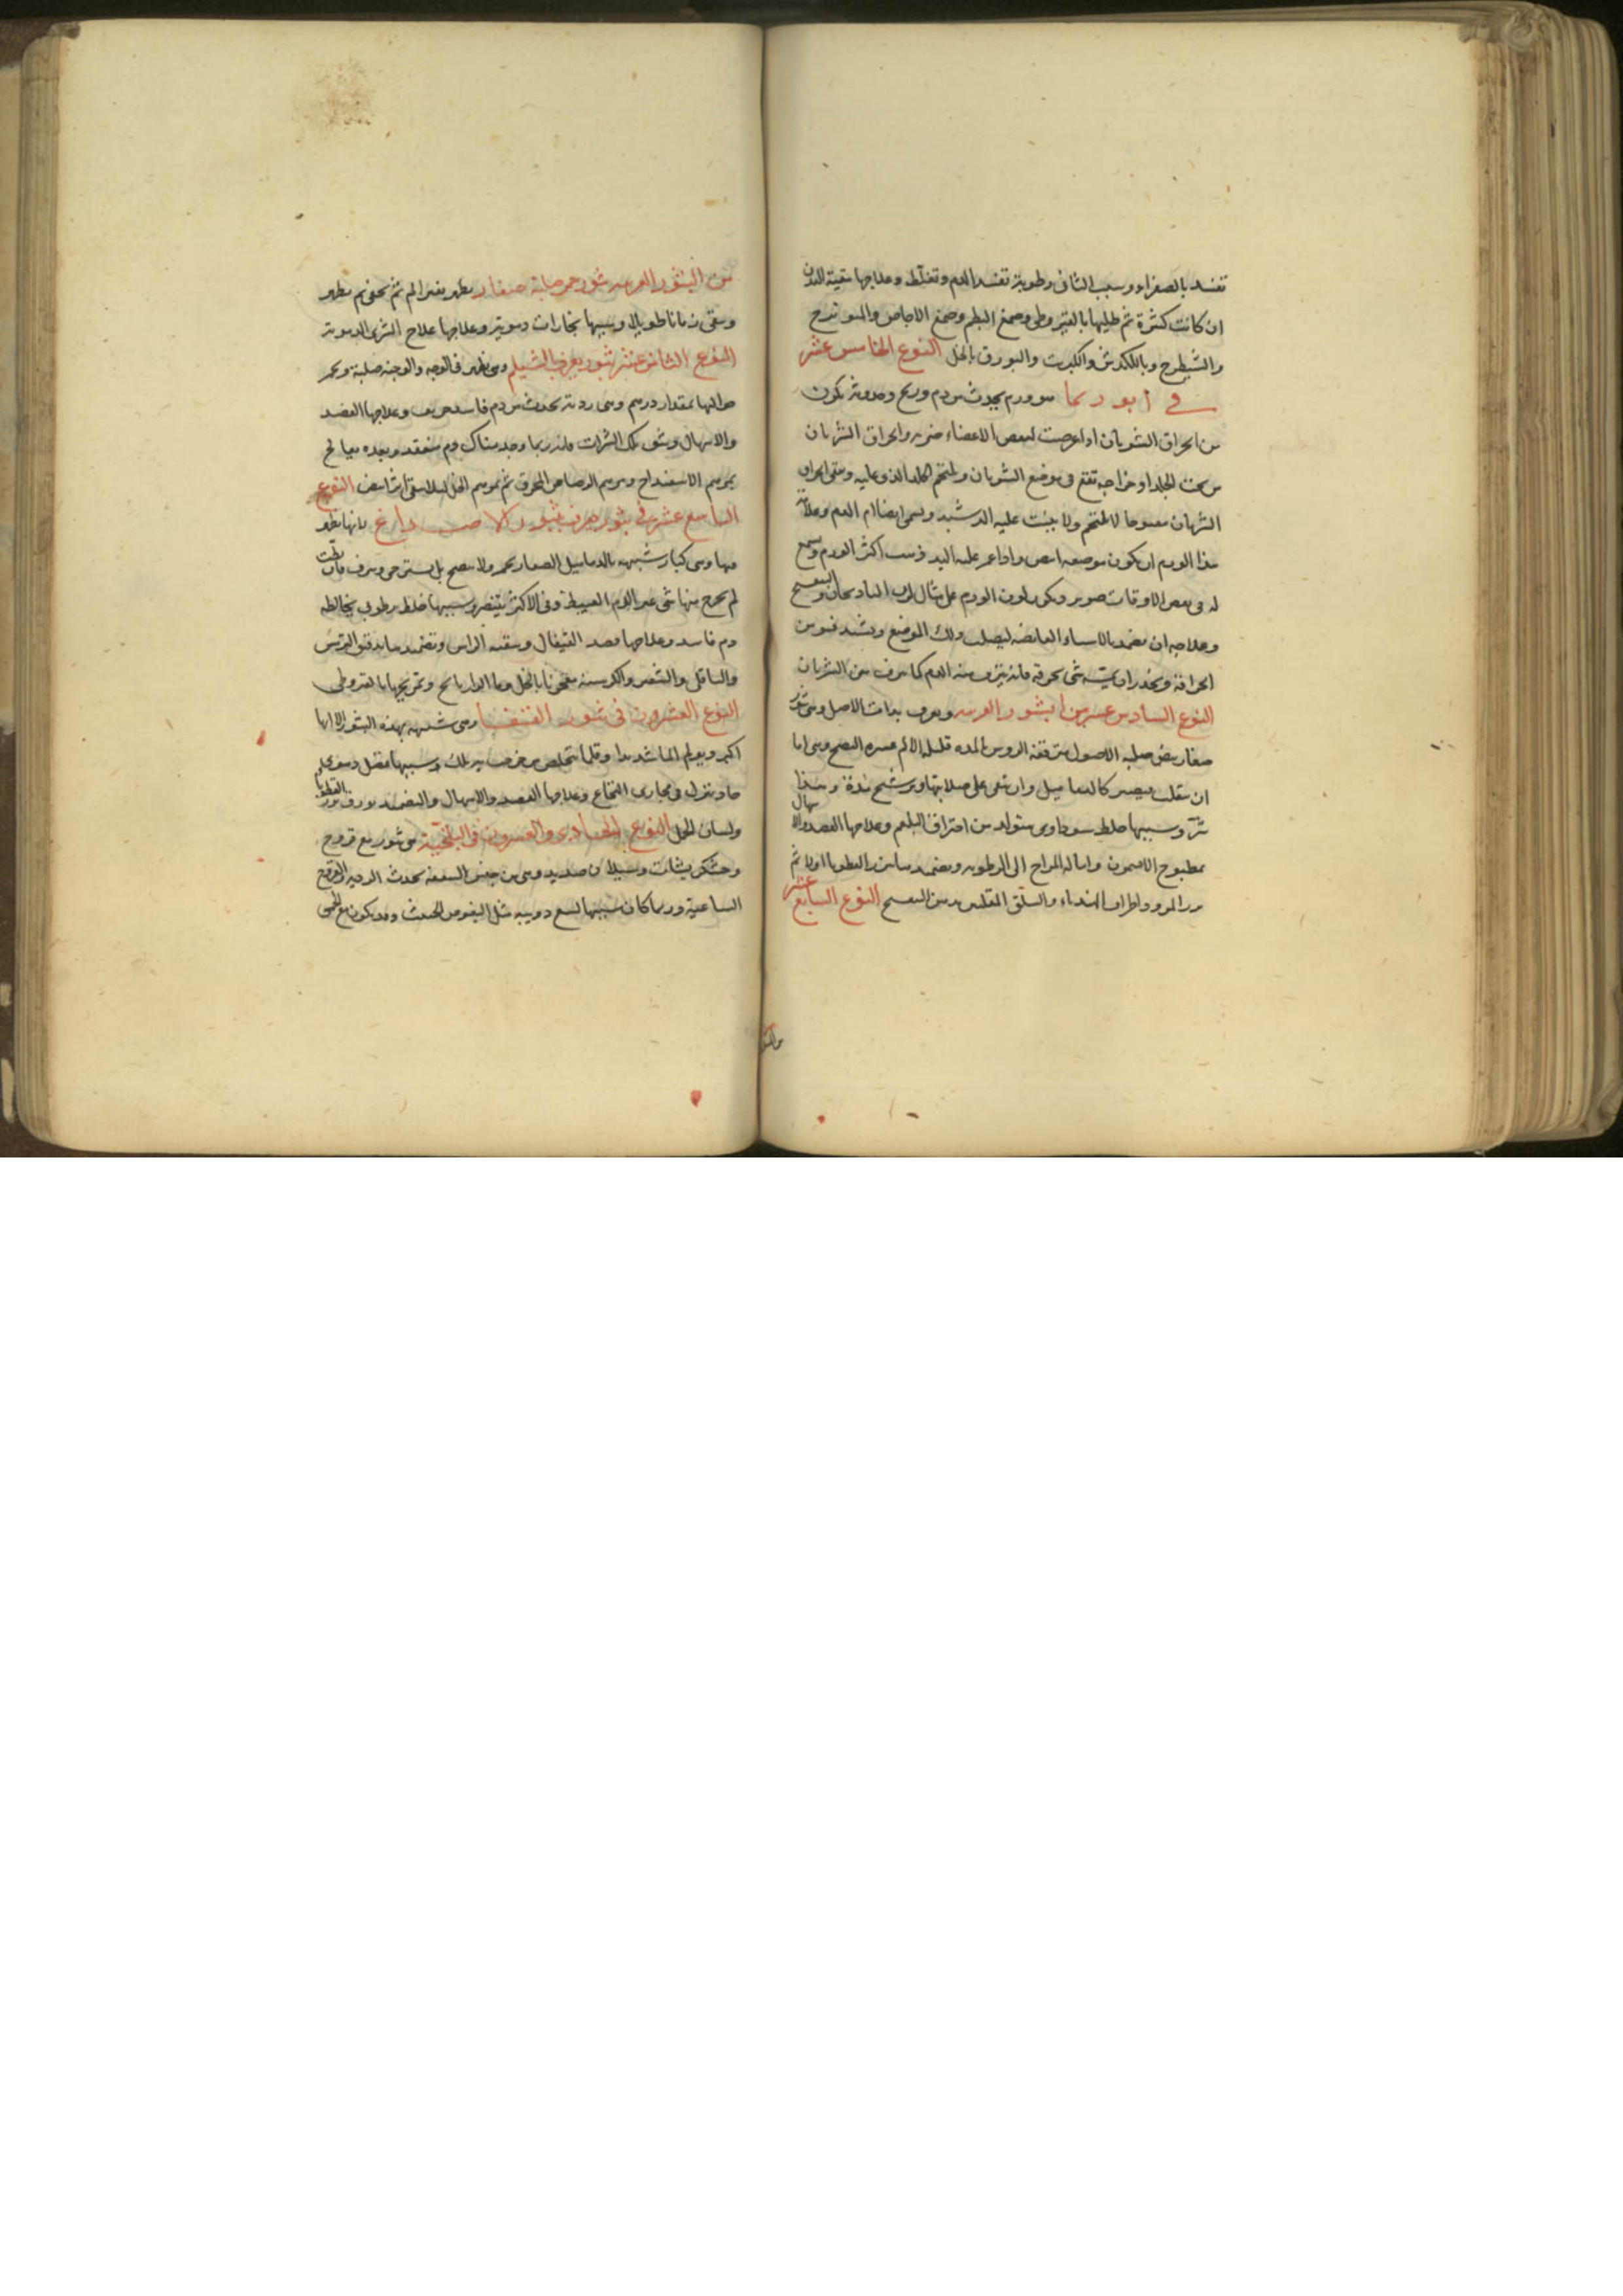 تفسد بالصفراء وسبب الثانى رطوبة تفسد الدم وتغلظ وعلاجها تنقية البدن
ان كانت كثيرة ثم طليها بالقيروطى وصمغ البطم وصمغ الاجاص والميوبزج
والشيطرج وبالكندش والكبريت والبورق بالخل النوع الخامس عشر
فى ابو رسما هو ورم يحدث من دم وريح وحدوثه يكون
من انخراق الشريان اذا عرضت لبعض الاعضاء ضربه وانخراق الشريان
من تحت الجلد او خراجه تفتح فى موضع الشريان ويلتحم الجلد الذى عليه ويبقى انخراق
الشريان مفتوحا لا يلتحم ولا ينبت عليه الدشبد ويسمى ايضا ام الدم وعلامة
هذا الورم ان يكون موضعه وادا غمز عليه اليد ذهب اكثر الورم ويسمع
له فى بعض الاوقات صوير ويكون لون الورم على مثال لون البادنجان والبنفسج
وعلاجه ان يضمد بالاشياء القابضه ليصلب ذلك الموضع ويشتد
انخراقه ويحذر ان يمسه شى يخرقه فانه ينزف منه الدم كما ينزف من الشريان
النوع السادس عشر من البثور الغريبه ويعرف ببنات الاصل وهى بثور
صغار بيض صلبه الاصول متفرقة الروس المده قليله الالم عسره النضج وهى اما
ان تنقلب فيصير كالدماميل وان تبقى على صلابتها ويرشح نزة وهذا
شر وسببها خلط سوداوى متولد من احتراق البلغم وعلاجها الفصد والاسهال
بمطبوخ الافتيمون وامالة المزاج الى الرطوبه ويضمد ببزر القطونا اولا ثم
بزر المرو واطراف الهندباء والسلق المقلى بدهن البنفسج النوع السابع عشر
من البثور الغريبه بثور حمر صلبة صغار يظهر بغير الم ثم يخفى ثم يظهر
ويبقى زمانا طويلا وسببها بخارات دموية وعلاجها علاج الشرى الدموية
النوع الثامن عشر بثور يعرف بالشيلم وهى تظهر فى الوجه والوجنه صلبة ويحمر
حواليها بمقدار درهم وهى ردية تحدث من دم فاسد حريف وعلاجها الفصد
والاسهال وشق تلك البثرات فانه ربما وجد هناك دم منعقد وبعده يعالج
بمرهم الاسفيداج ومرهم الرصاص المحرق ثم بمرهم الخل ليلا يبقى اثر ابيض النوع
التاسع عشر فى بثور يعرف ببثور الاصداغ بانها يظهر
فيها وهى كبار شبيهه بالدماميل الصغار يحمر ولا ينضج بل يسترخى وينزف فان بطت
لم يخرج منها شى غير الدم العبيط وفى الاكثر يتنصر وسببها خلط رطوبى يخالطه
دم فاسد وعلاجها فصد القيفال وتنقيه الراس وتضميدها بدقيق الترمس
والباقلى والشعير والكرسنه معجونا بالخل وما الرازيانج وتمريخها بالقيروطى
النوع العشرون فى بثور القنفبا وهى شبيهه بهذه البثور الا انها
اكبر ويولم الما شديدا وقلما يتخلص من خرجت به تلك وسببها فضل دموى
حاد ينزل فى مجارى النخاع وعلاجها الفصد والاسهال والتضميد بورق بزر القطونا
ولسان الحمل النوع الحادى والعشرون فى البلخية هى بثور مع قروح
وخشكريشات وسيلان صديد وهى من جنس السعفه تحدث الرديه والقروح
الساعية وربما كان سببها لسع دويبه مثل البعوض الخبيث وقد يكون مع الحمى